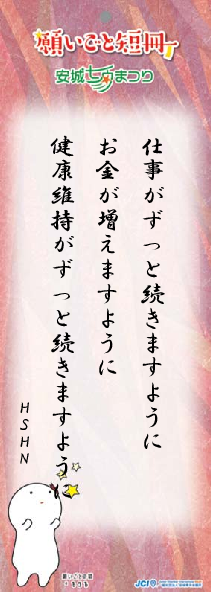 願いごと短冊
安城七夕まつり
仕事がずっと続きますように
お金が増えますように
健康維持がずっと続きますように
HSHN
願いごと短冊
JCI